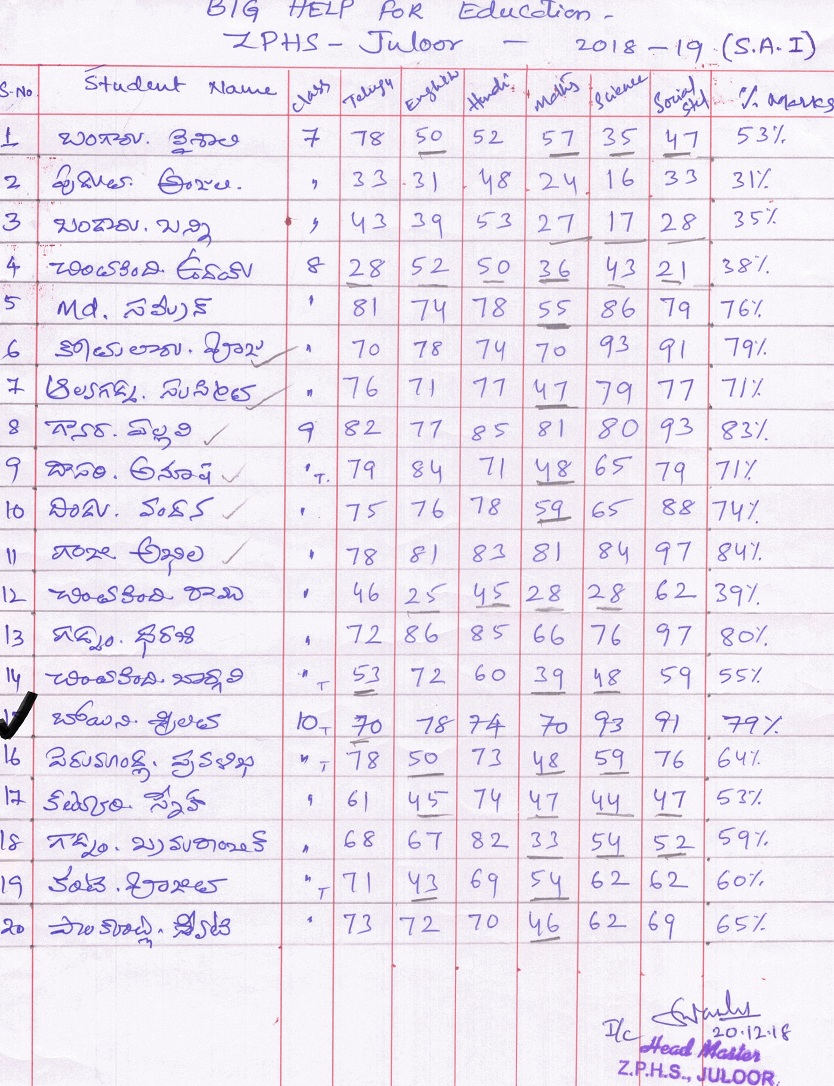 BIG HELP FOR Education -
ZPHS - Juloor - 2018-19 (S.A.I)
S.No Student Name Class Telugu English Hindi Maths Science Social Stud % Marks
1 బంగారు. వైశాలి 7 78 50 52 57 35 47 53%
2 అంజలి. " 33 31 48 24 16 33 31%
3 బండారు. బన్ని " 43 39 53 27 17 28 35%
4 చింతకింది. ఉదయ్ 8 28 52 50 36 43 21 38%
5 Md. సమ్రీన్ " 81 74 78 55 86 79 76%
6 " 70 78 74 70 93 91 79%
7 " 76 71 77 47 79 77 71%
8 పల్లవి 9 82 77 85 81 80 93 83%
9 దాసరి. అనూష " T. 79 84 71 48 65 79 71%
10 దిండు. వందన " 75 76 78 59 65 88 74%
11 గంజి అఖిల " 78 81 83 81 84 97 84%
12 చింతకింది రాము " 46 25 45 28 28 62 39%
13 గడ్డం. ధరణి " 72 86 85 66 76 97 80%
14 చింతకింది. భార్గవి " T 53 72 60 39 48 59 55%
15 బోయిని. శ్రీలత 10 T 70 78 74 70 93 91 79%
16 పెరుమాండ్ల. ప్రవళిక " T 78 50 73 48 59 76 64%
17 " 61 45 74 47 44 47 53%
18 గడ్డం. " 68 67 82 33 54 52 59%
19 " T 71 43 69 54 62 62 60%
20 " 73 72 70 46 62 69 65%
20.12.18
I/c Head Master
Z.P.H.S., JULOOR.